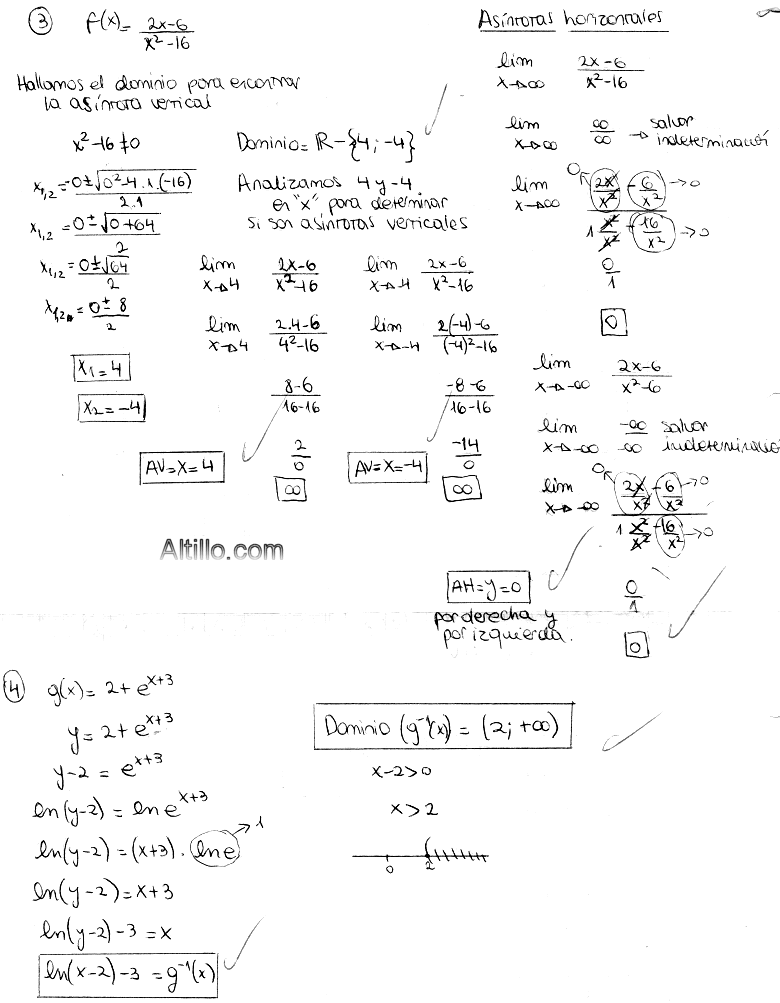 ③ f(x) = (2x-6)/(x²-16)
Hallamos el dominio para encontrar
la asíntota vertical
x²-16 ≠ 0
x₁,₂ = (-0 ± √(0²-4.1.(-16)))/(2.1)
x₁,₂ = (0 ± √(0+64))/2
x₁,₂ = (0 ± √64)/2
x₁,₂ = (0 ± 8)/2
x₁ = 4
x₂ = -4
Dominio = R - {4 ; -4}
Analizamos 4 y -4
en "x" para determinar
si son asíntotas verticales
lim x→4 (2x-6)/(x²-16)
lim x→4 (2.4-6)/(4²-16)
(8-6)/(16-16)
2/0
∞
AV = x = 4
lim x→-4 (2x-6)/(x²-16)
lim x→-4 (2(-4)-6)/((-4)²-16)
(-8-6)/(16-16)
-14/0
∞
AV = x = -4
Altillo.com
Asíntotas horizontales
lim x→∞ (2x-6)/(x²-16)
lim x→∞ ∞/∞ → salvar
indeterminació
lim x→∞ (0 ← 2x/x² - 6/x² → 0)/(1 x²/x² - 16/x² → 0)
0/1
0
lim x→-∞ (2x-6)/(x²-6)
lim x→-∞ -∞/∞ salvar
indeterminació
lim x→-∞ (0 ← 2x/x² - 6/x² → 0)/(1 x²/x² - 16/x² → 0)
0/1
0
AH = y = 0
por derecha y
por izquierda.
④ g(x) = 2 + e^(x+3)
y = 2 + e^(x+3)
y-2 = e^(x+3)
ln(y-2) = ln e^(x+3)
ln(y-2) = (x+3) . ln e → 1
ln(y-2) = x+3
ln(y-2)-3 = x
ln(x-2)-3 = g⁻¹(x)
Dominio (g⁻¹(x)) = (2; +∞)
x-2>0
x>2
0 2